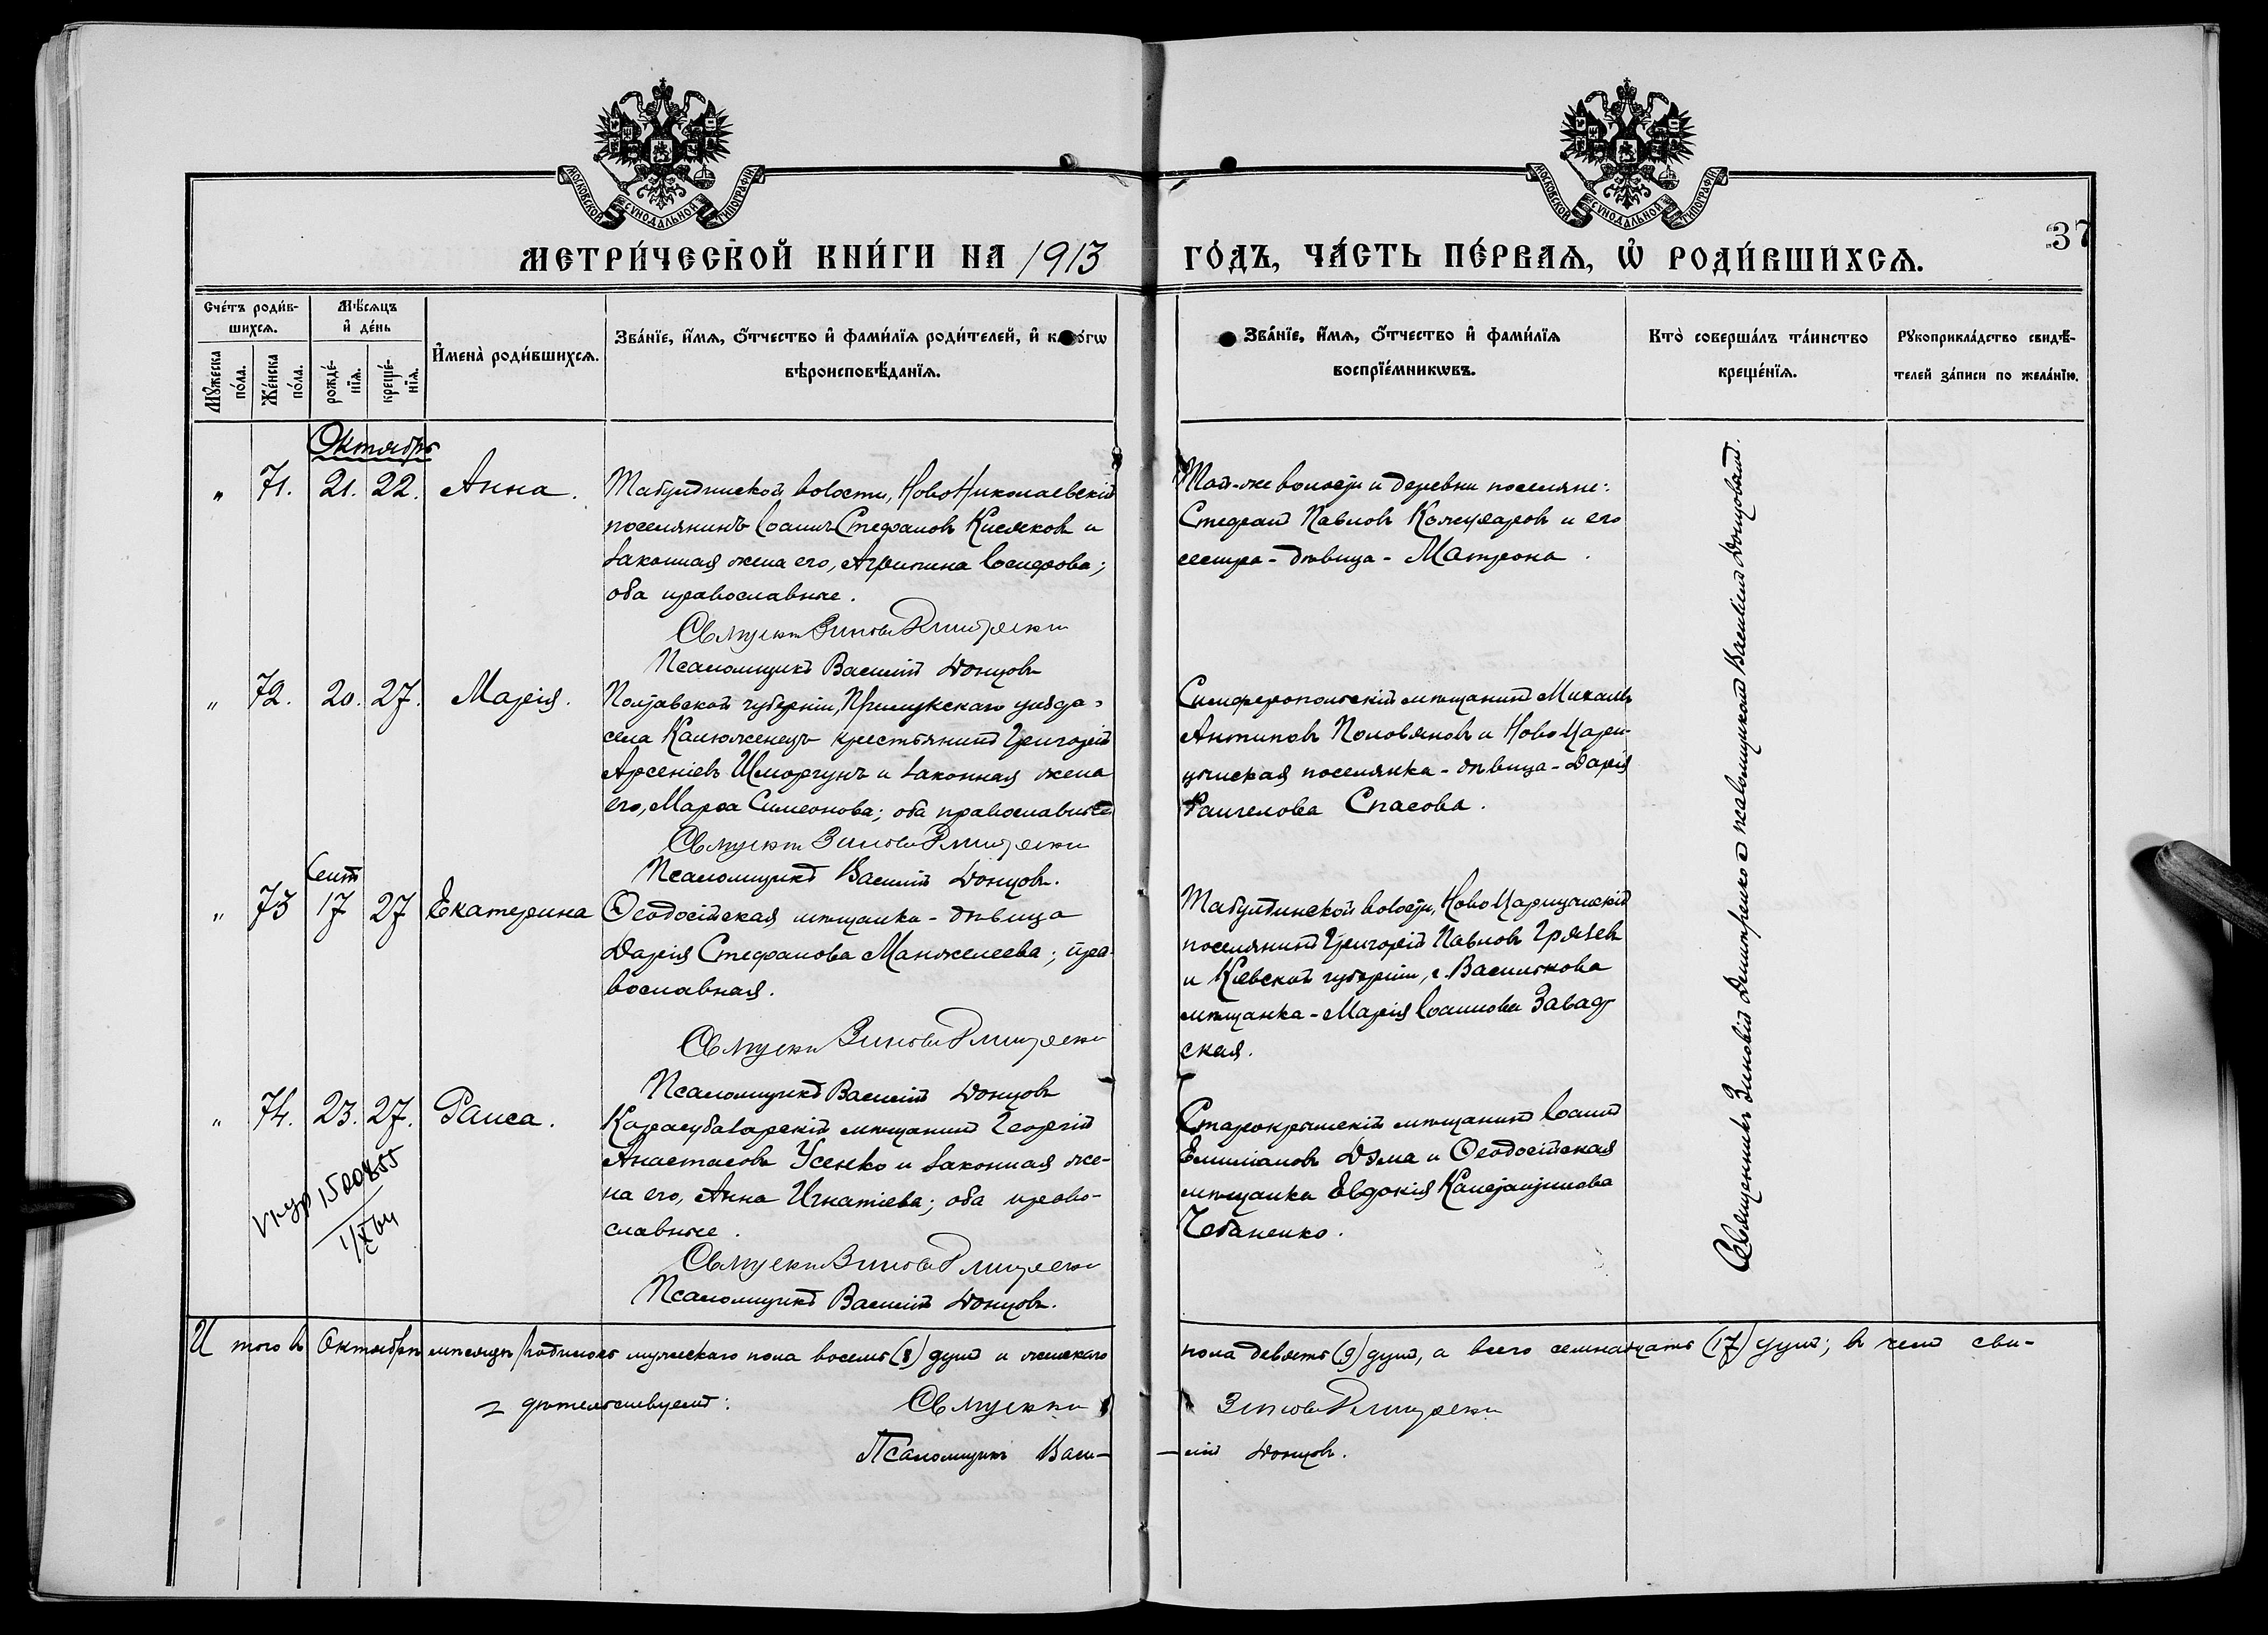 МОСКОВСКОЙ СУНОДАЛЬНОЙ ТИПОГРАФІИ
МОСКОВСКОЙ СУНОДАЛЬНОЙ ТИПОГРАФІИ
37
МЕТРИ́ЧЕСКОЙ КНИ́ГИ НА 1913 ГО́ДЪ, ЧА́СТЬ ПЕ́РВАѦ, Ѡ҆ РОДИ́ВШИХСѦ.
Сче́тъ роди́в-
шихсѧ.
Мꙋ́жеска по́ла.
Же́нска по́ла.
Мѣ́сѧцъ
и҆ де́нь
рожде́-
нїѧ.
креще́-
нїѧ.
И҆мена̀ роди́вшихсѧ.
Зва́нїе, и҆́мѧ, ѻ҆́тчество и҆ фами́лїѧ роди́телей, и҆ ко́гѡ
вѣроисповѣ́данїѧ.
Зва́нїе, и҆́мѧ, ѻ҆́тчество и҆ фами́лїѧ
воспрїе́мникѡвъ.
Кто̀ соверша́лъ та́инство
креще́нїѧ.
Рꙋкоприкла́дство свидѣ́-
телей за́писи по жела́нїю.
Октябрь
" 71. 21. 22. Анна.
Табулдинской волости, НовоНиколаевскій
поселянинъ Іоаннъ Стефановъ Кисяковъ и
законная жена его, Агрипина Іосифова;
оба православные.
Священ Зинов Димитренко
Псаломщикъ Василій Донцовъ
Той-же волости и деревни поселяне:
Стефанъ Павловъ и его
сестра-дѣвица-Матрона.
" 72. 20. 27. Марія.
Полтавской губерніи, Прилукскаго уѣзда,
села Калюженецъ крестьянинъ Григорій
Арсеніевъ Шморгунъ и законная жена
его, Марѳа Симеонова; оба православные
Священ Зинов Димитренко
Псаломщикъ Василій Донцовъ.
Симферопольскій мѣщанинъ Михаилъ
Антиповъ Половяновъ и НовоЦари-
цынская поселянка-дѣвица-Дарія
Рангелова Спасова.
Сент
" 73 17 27 Екатерина
Ѳеодосійская мѣщанка-дѣвица
Дарія Стефанова Манжелеева; пра-
вославная.
Священ Зинов Димитренко
Псаломщикъ Василій Донцовъ
Табулдинской волости, НовоЦарицынскій
поселянинъ Григорій Павловъ Грязевъ
и Кіевской губерніи, г. Василькова
мѣщанка-Марія Іоаннова Завад-
ская.
" 74. 23. 27. Раиса.
Карасубазарскій мѣщанинъ Георгій
Анастасовъ Усенко и законная же-
на его, Анна Игнатіева; оба право-
славные.
Священ Зинов Димитренко
Псаломщикъ Василій Донцовъ.
Старокрымскій мѣщанинъ Іоаннъ
Емиліановъ Дэма и Ѳеодосійская
мѣщанка Евдокія
Чебаненко.
1/X 64
Священникъ Зиновій Димитренко съ псаломщикомъ Василіемъ Донцовымъ.
И того въ Октябрѣ мѣсяцѣ родилось мужескаго пола восемь (8) душъ и женскаго пола девять (9) душъ, а всего семнадцать (17) душъ; въ чемъ сви-
дѣтельствуемъ: Священ Зинов Димитренко
Псаломщикъ Васи-
-лій Донцовъ.